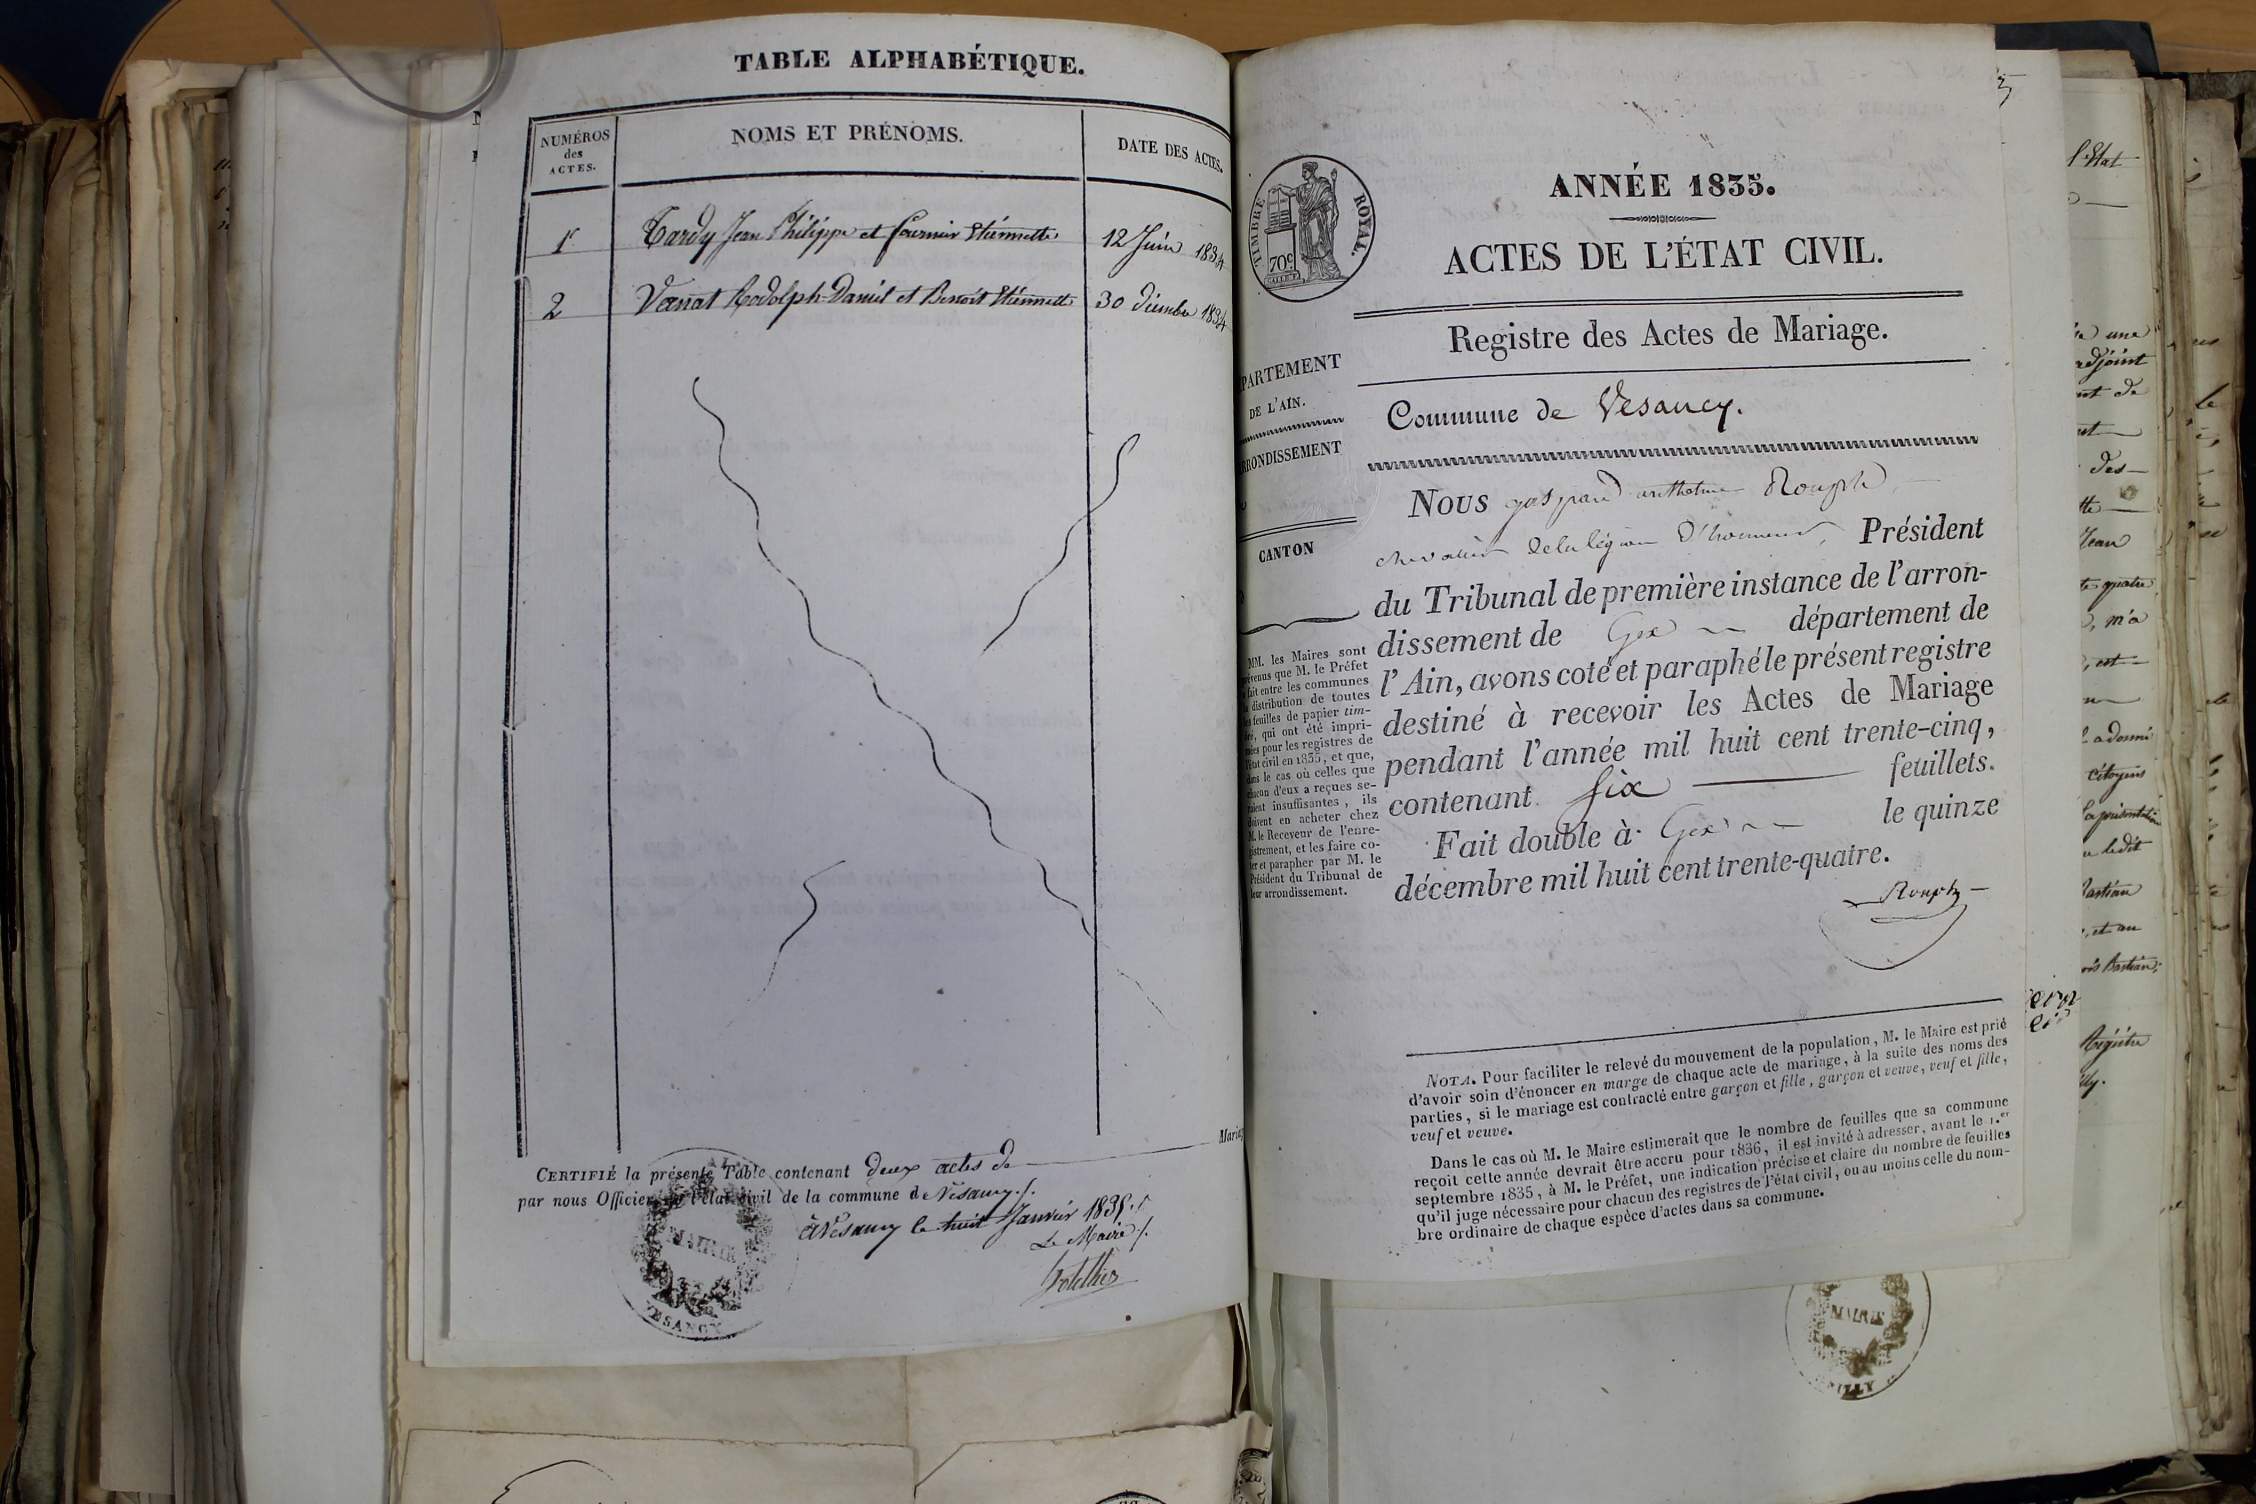 TABLE ALPHABÉTIQUE.
NUMÉROS
des
ACTES.
NOMS ET PRÉNOMS.
DATE DES ACTES.
1r Tardy Jean Philippe et fournier Etiennette 12 Juin 1834
2 Vanat Rodolph-Daniel et Benoit Etiennette 30 décembre 1834
CERTIFIÉ la présente Table contenant deux actes de
Maria
par nous Officier de l'état civil de la commune de Vésancy./.
à Vésancy le huit Janvier 1835./.
Le Maire./.
MAIRIE
VESANCY
TIMBRE ROYAL.
70c
ANNÉE 1835.
ACTES DE L'ÉTAT CIVIL.
Registre des Actes de Mariage.
PARTEMENT
DE L'AIN.
RRONDISSEMENT
CANTON
Commune de Vesancy.
Nous gaspard anthelme Rouph
chevalier de la légion d'honneur, Président
du Tribunal de première instance de l'arron-
dissement de Gex département de
l'Ain, avons coté et paraphé le présent registre
destiné à recevoir les Actes de Mariage
pendant l'année mil huit cent trente-cinq,
contenant six feuillets.
Fait double à Gex le quinze
décembre mil huit cent trente-quatre.
Rouph
MM. les Maires sont
évenus que M. le Préfet
fait entre les communes
distribution de toutes
feuilles de papier tim-
ré, qui ont été impri-
mées pour les registres de
l'état civil en 1835, et que,
dans le cas où celles que
chacun d'eux a reçues se-
raient insuffisantes, ils
doivent en acheter chez
M. le Receveur de l'enre-
gistrement, et les faire co-
ter et parapher par M. le
Président du Tribunal de
leur arrondissement.
NOTA. Pour faciliter le relevé du mouvement de la population, M. le Maire est prié
d'avoir soin d'énoncer en marge de chaque acte de mariage, à la suite des noms des
parties, si le mariage est contracté entre garçon et fille, garçon et veuve, veuf et fille,
veuf et veuve.
Dans le cas où M. le Maire estimerait que le nombre de feuilles que sa commune
reçoit cette année devrait être accru pour 1836, il est invité à adresser, avant le 1.er
septembre 1835, à M. le Préfet, une indication précise et claire du nombre de feuilles
qu'il juge nécessaire pour chacun des registres de l'état civil, ou au moins celle du nom-
bre ordinaire de chaque espèce d'actes dans sa commune.
l'Etat
une
adjoint
de
des
Jean
quatre
m'a
est
a donné
citoyens
la présentation
ledit
Bastian
et au
Bastian;
Régistre
MAIRIE